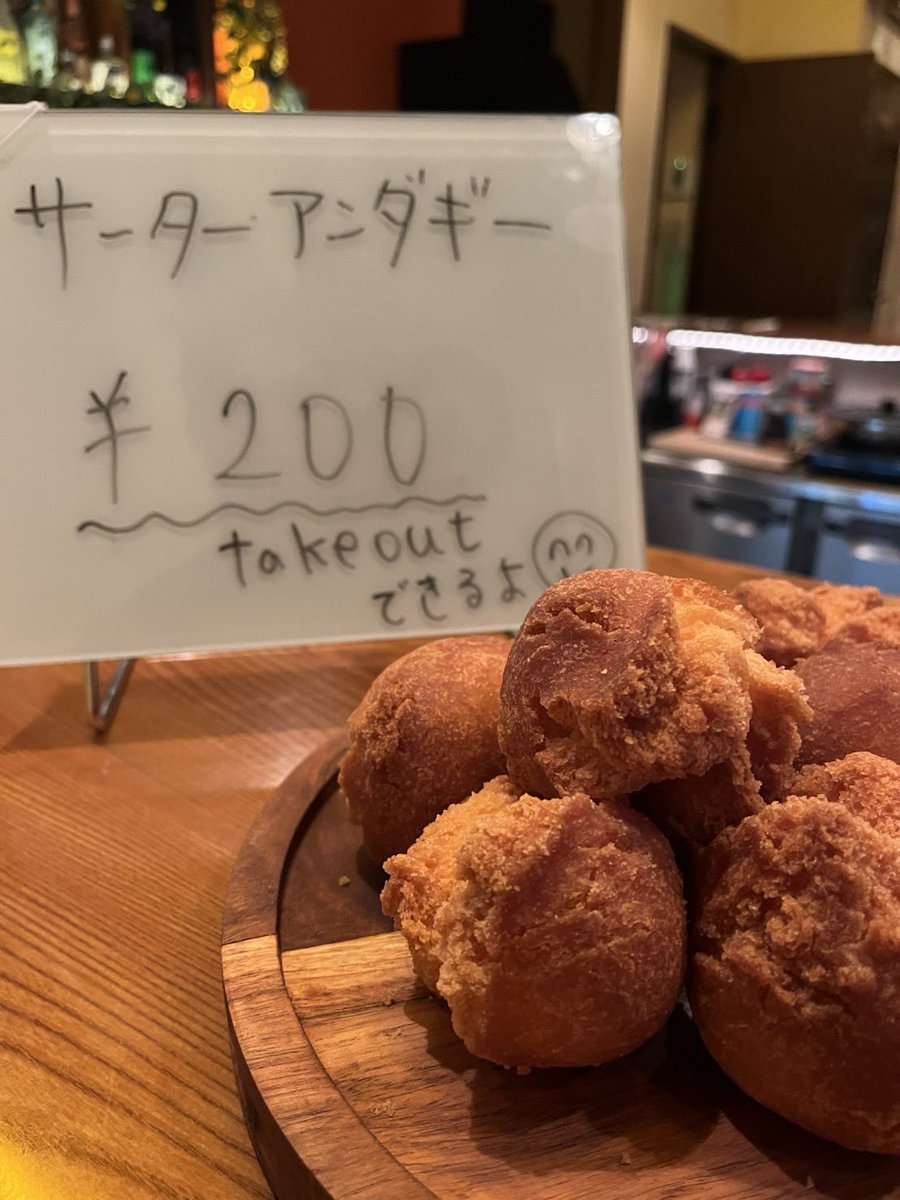 サーターアンダギー
¥ 200
takeout
できるよ